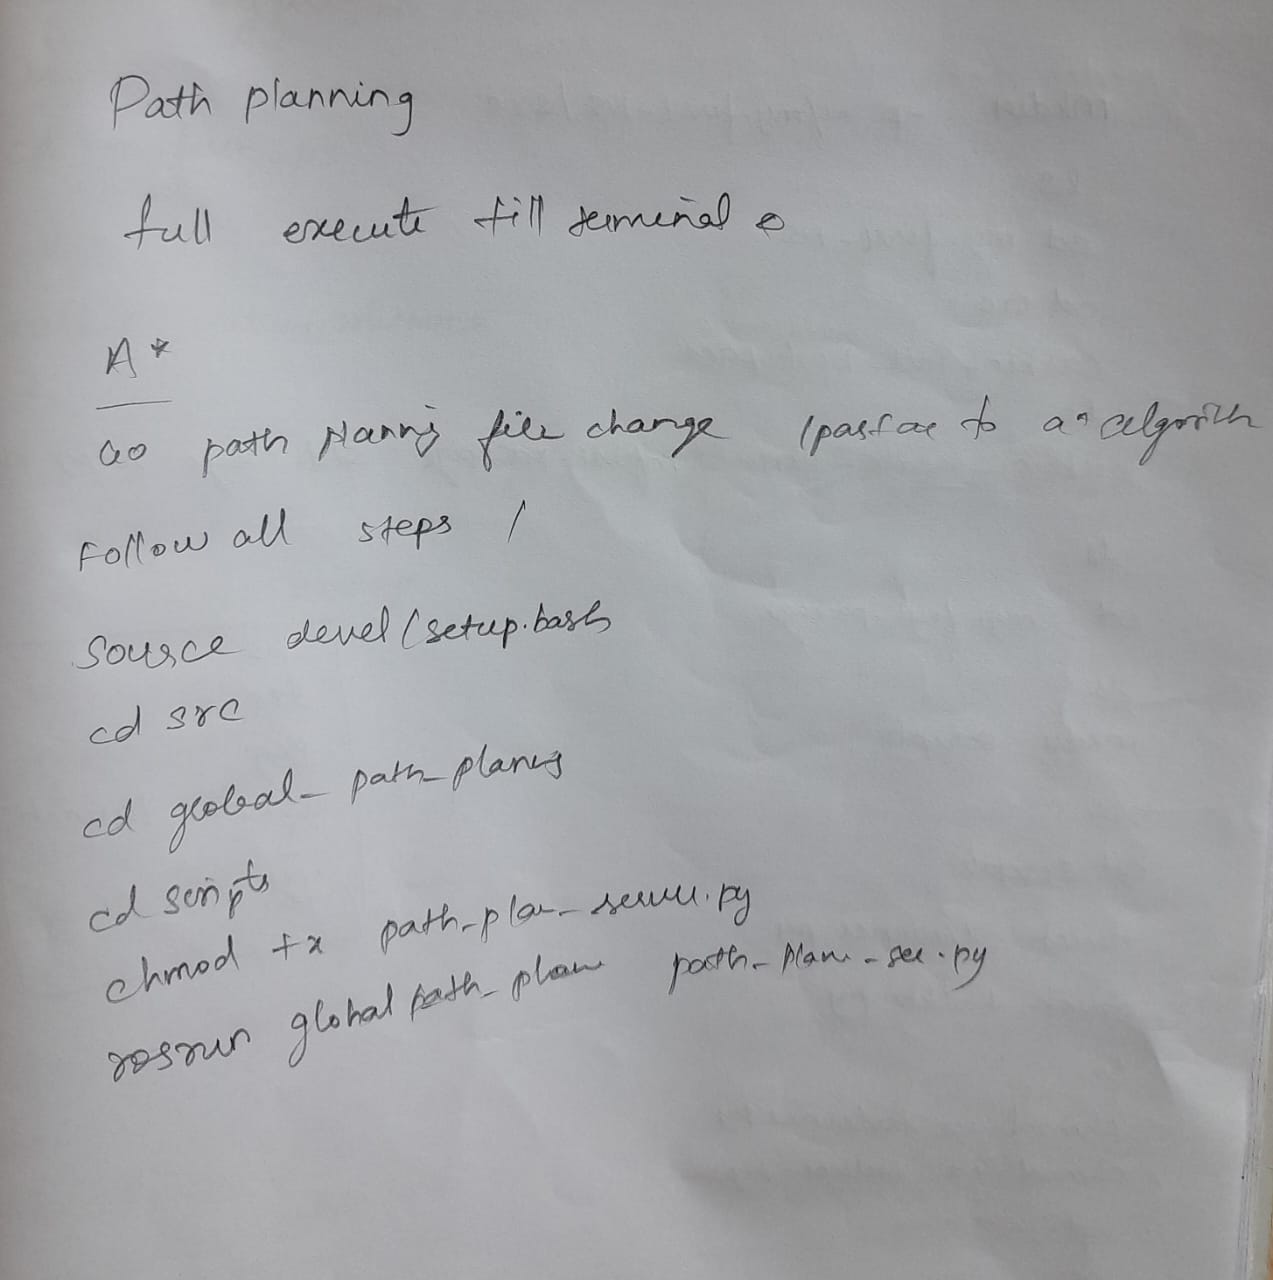 Path planning
full execute till terminal
A*
Go path planning file change to a* algorithm
Follow all steps /
Source devel/setup.bash
cd src
cd global_path_
cd scripts
chmod +x path_plan_server.py
rosrun global path_plan path_plan_ser.py